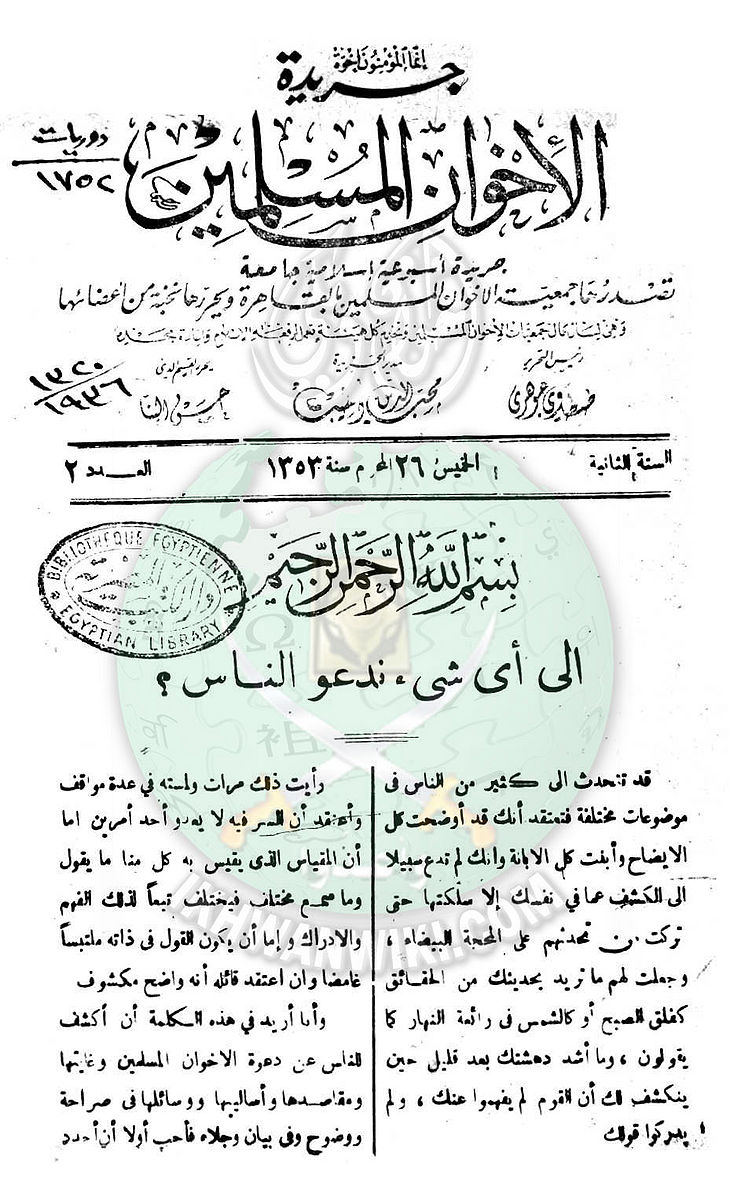 إنما المؤمنون إخوة
جريدة
الإخوان المسلمين
دوريات
١٧٥٢
جريدة أسبوعية إسلامية جامعة
تصدرها جمعية الاخوان المسلمين بالقاهرة ويحررها نخبة من أعضائها
وهي لسان حال جمعيات الاخوان المسلمين وتخدم كل هيئة تعمل لرفعة الاسلام
رئيس التحرير
مدير الجريدة
يحرر القسم الديني
طنطاوي جوهري
محب الدين الخطيب
حسن البنا
١٣٢٠
١٩٣٦
السنة الثانية
الخميس ٢٦ المحرم سنة ١٣٥٣
العدد ٢
بسم الله الرحمن الرحيم
BIBLIOTHEQUE EGYPTIENNE
EGYPTIAN LIBRARY
الى أى شىء ندعو الناس ؟
قد تتحدث الى كثير من الناس فى
موضوعات مختلفة فتعتقد أنك قد أوضحت كل
الايضاح وأبنت كل الابانة وأنك لم تدع سبيلا
الى للكشف عما في نفسك إلا سلكتها حتى
تركت من تحدثهم على المحجة البيضاء ،
وجعلت لهم ما تريد بحديثك من الحقائق
كفلق الصبح أو كالشمس فى رائعة النهار كما
يقولون ، وما أشد دهشتك بعد قليل حين
ينكشف لك أن القوم لم يفهموا عنك ، ولم
يدركوا قولك
رأيت ذلك مرات ولمسته في عدة مواقف
وأعتقد أن السر فيه لا يعدو أحد أمرين اما
أن المقياس الذى يقيس به كل منا ما يقول
وما يسمع مختلف فيختلف تبعاً لذلك الفهم
والادراك وإما أن يكون القول فى ذاته ملتبساً
غامضا وان اعتقد قائله أنه واضح مكشوف
وأنا أريد في هذه الكلمة أن أكشف
للناس عن دعوة الاخوان المسلمين وغايتها
ومقاصدها وأساليبها ووسائلها فى صراحة
ووضوح وفى بيان وجلاء فأحب أولا أن أحدد
IKHWANWIKI.COM